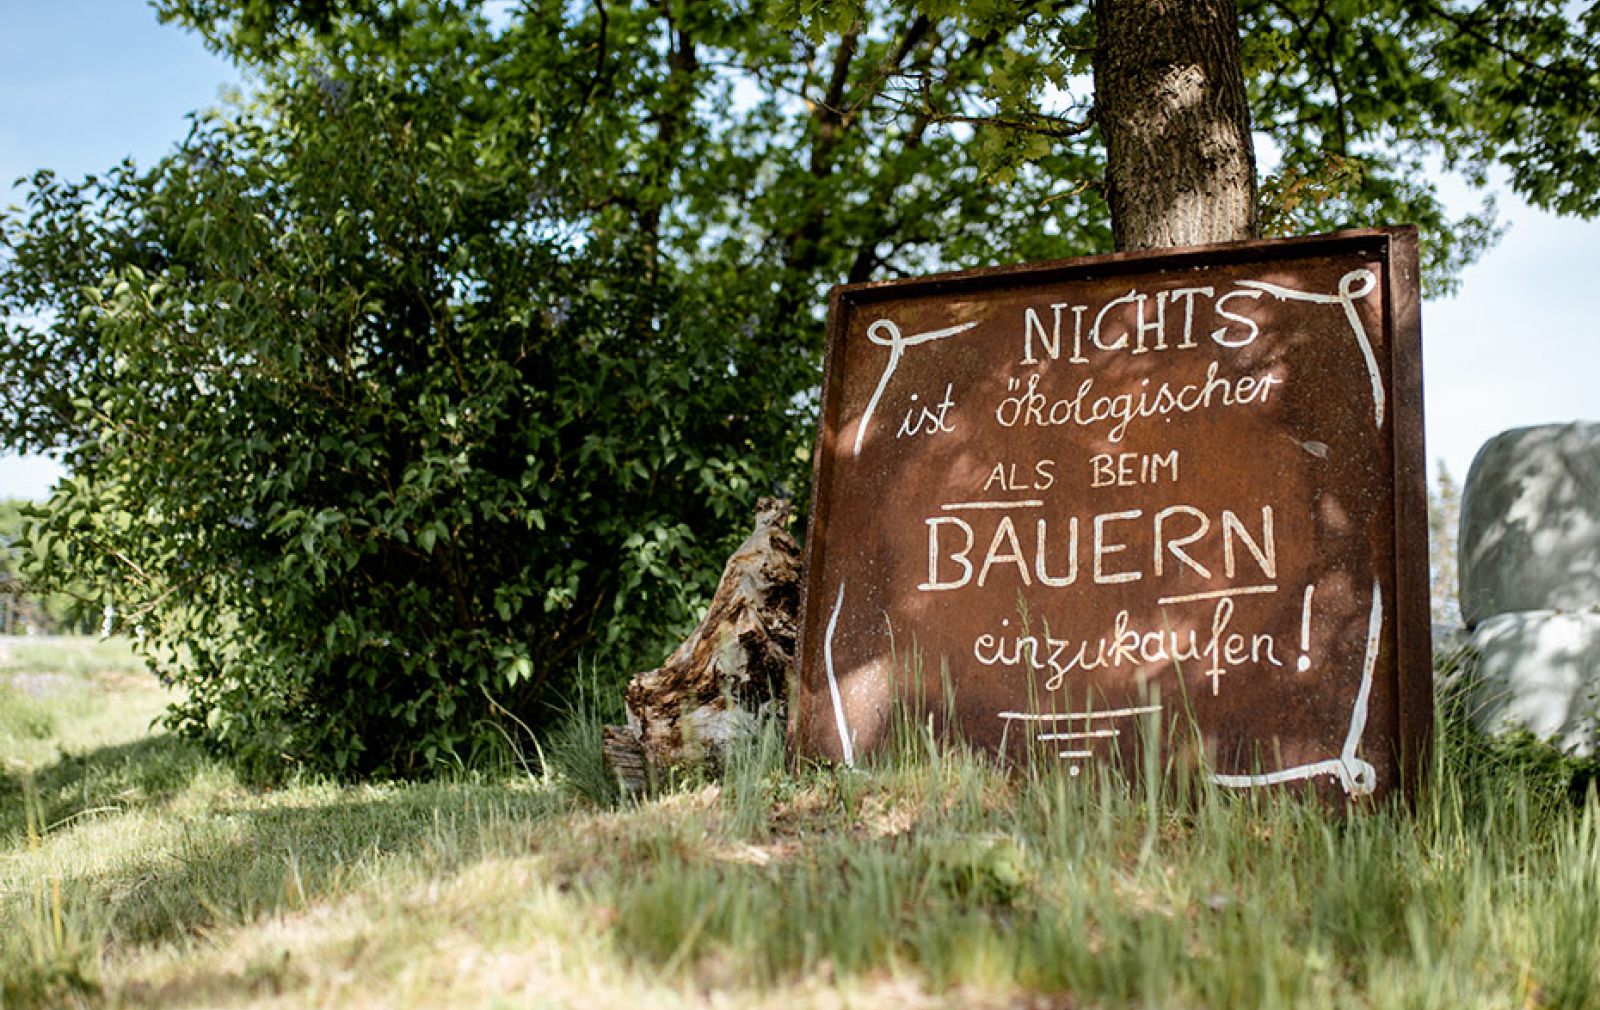 NICHTS
ist ökologischer
ALS BEIM
BAUERN
einzukaufen!